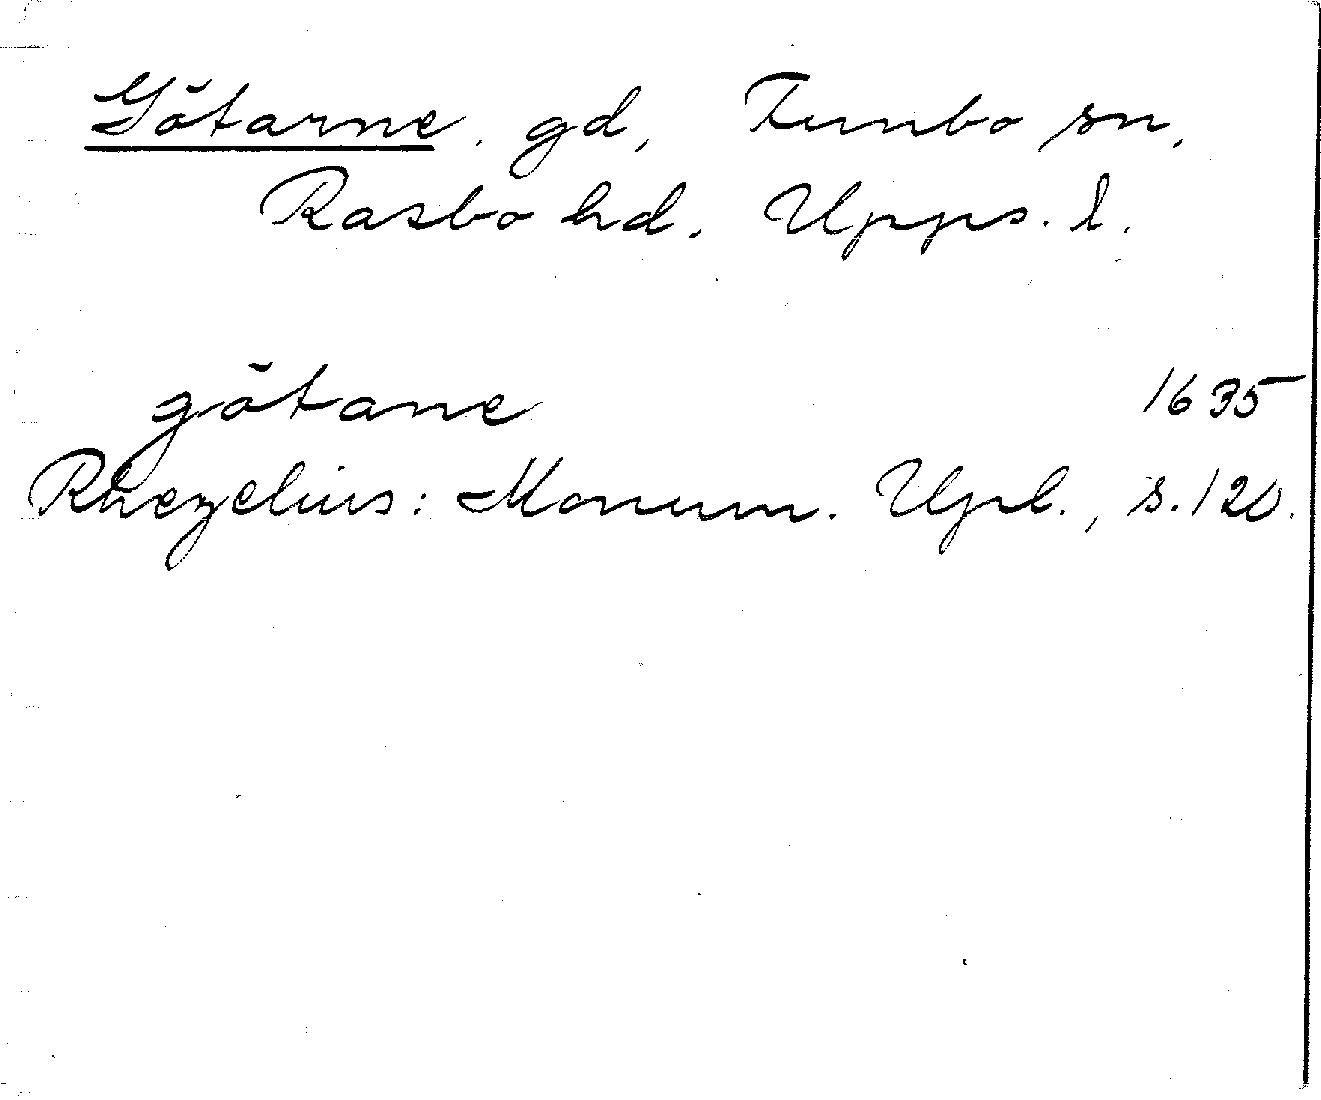 Götarne, gd, Funbo sn,
Rasbo hd. Upps. l.
götane 1635
Rhezelius: Monum. Upl., s. 120.